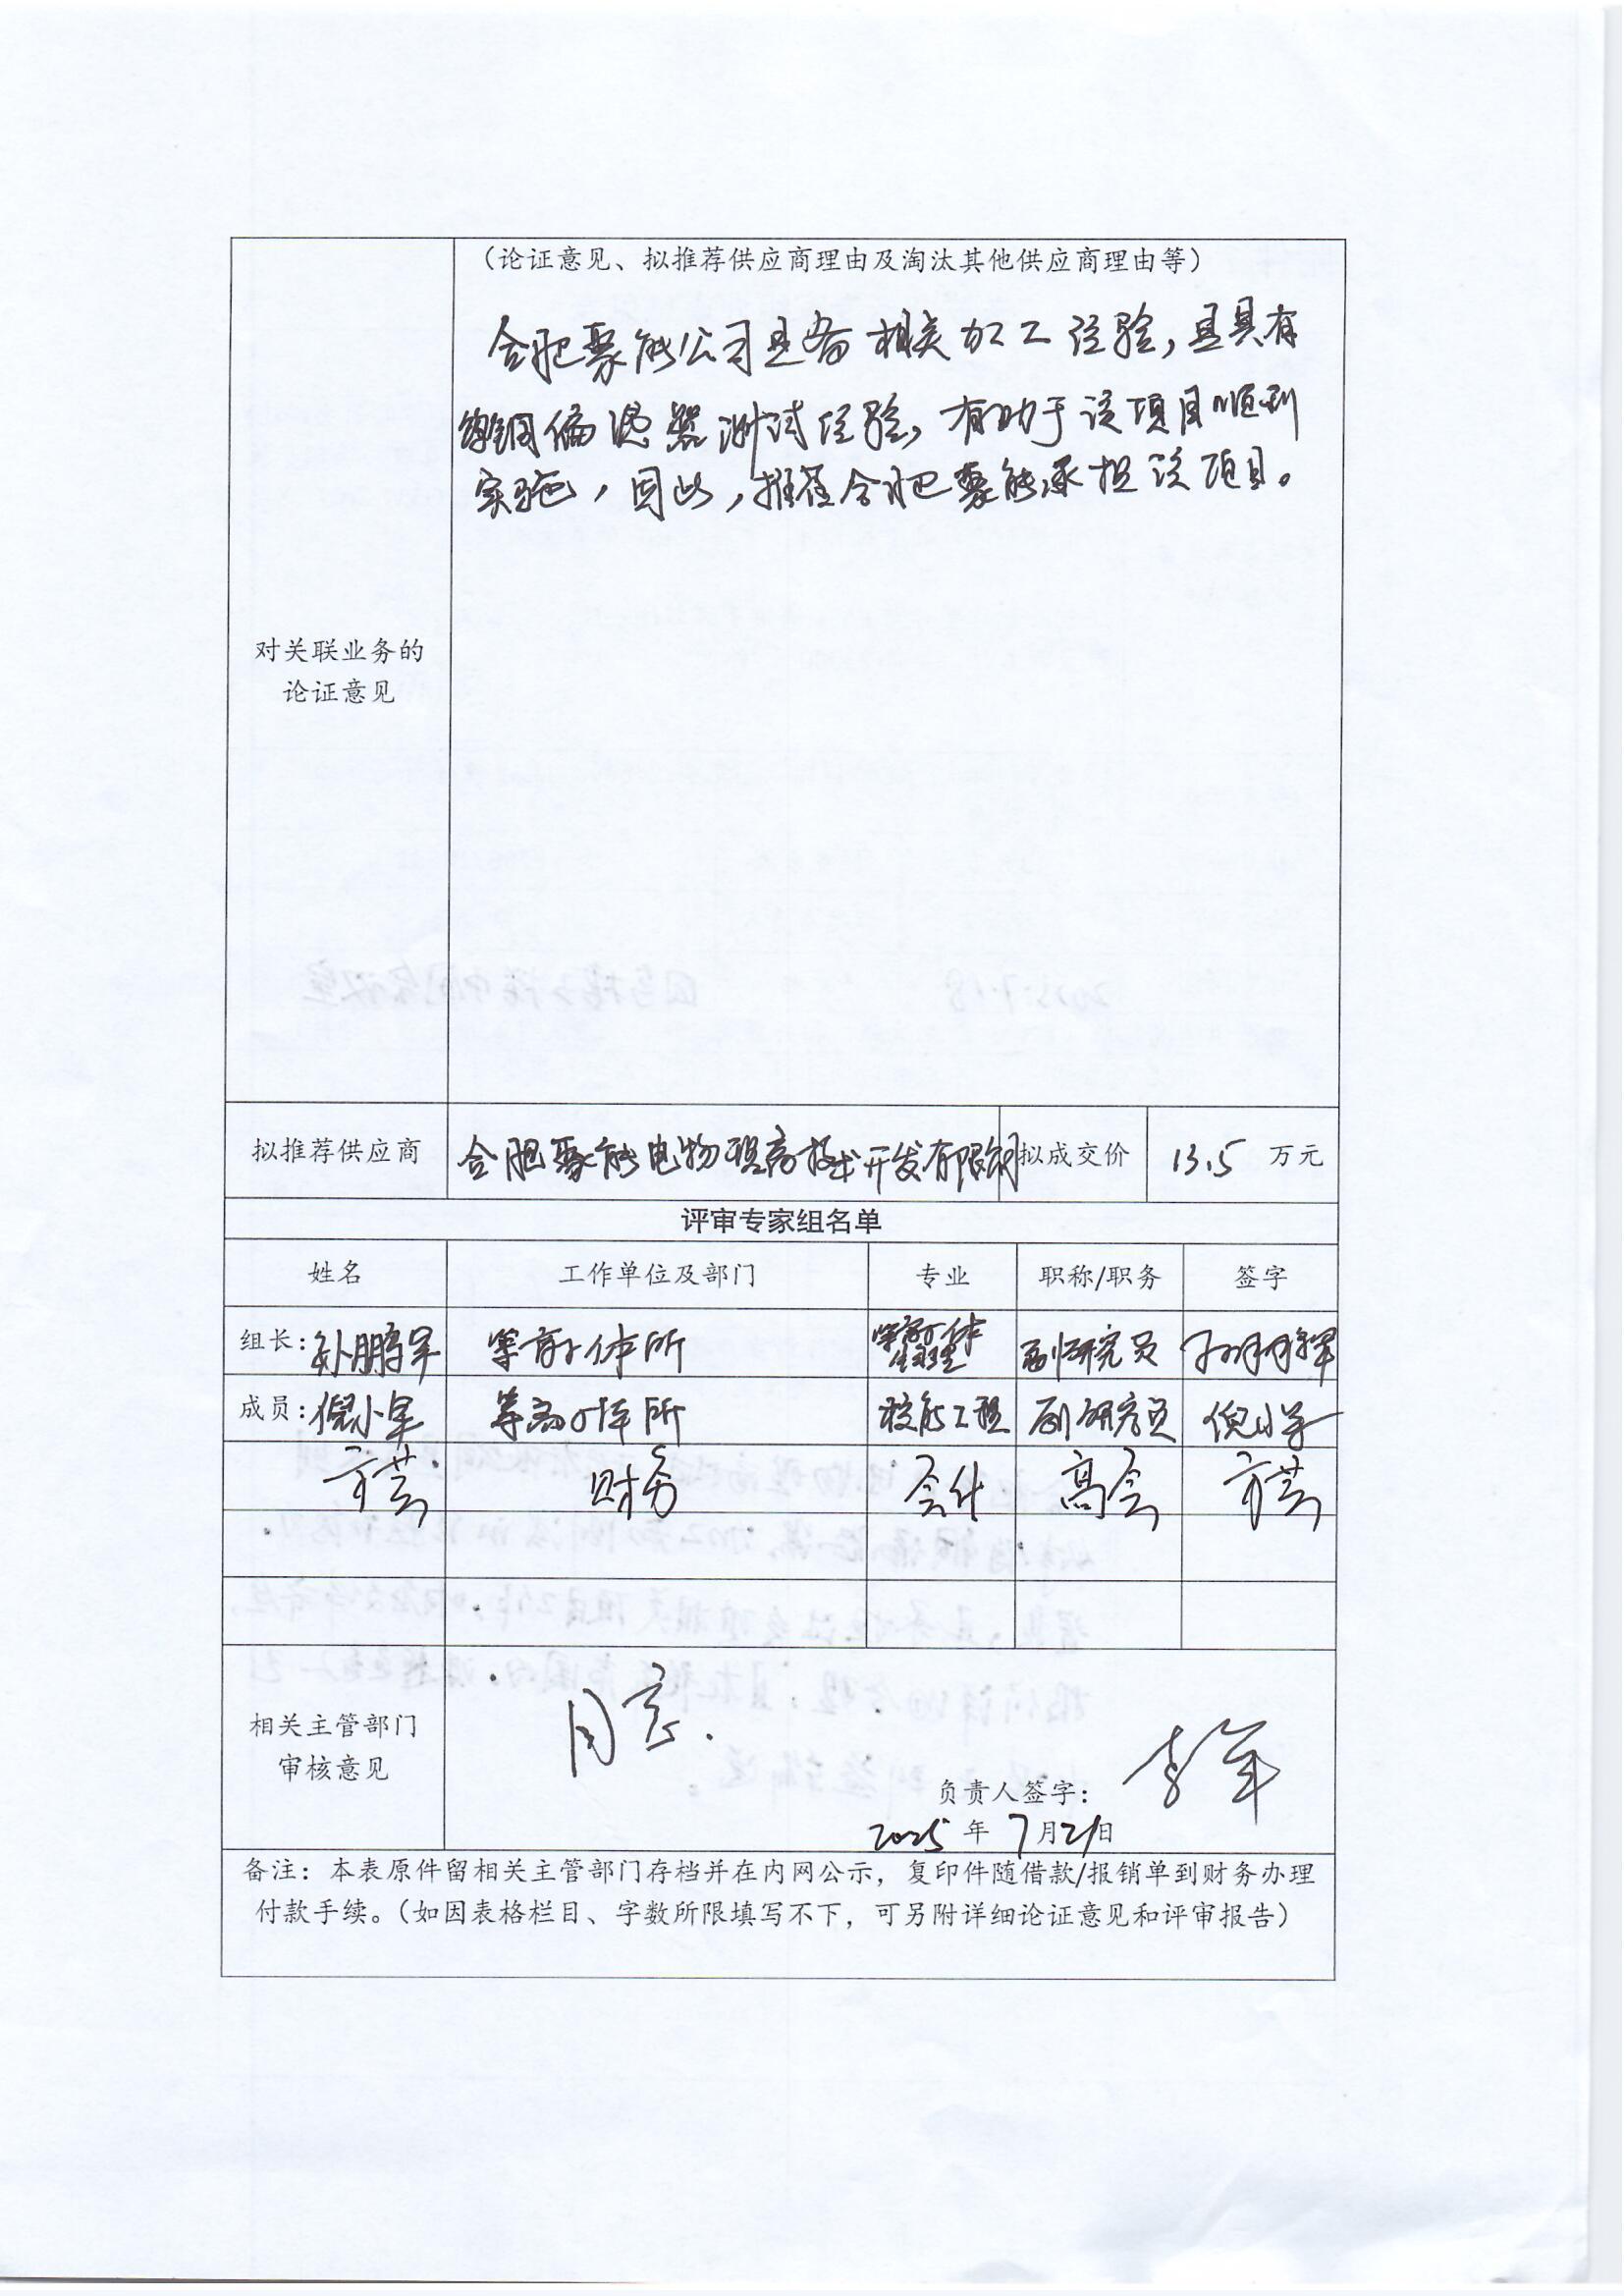 （论证意见、拟推荐供应商理由及淘汰其他供应商理由等）
合肥聚能公司具备相关加工经验，且具有
钨铜偏滤器测试经验，有助于该项目顺利
实施，因此，推荐合肥聚能承担该项目。
对关联业务的
论证意见
拟推荐供应商 合肥聚能电物理高技术开发有限公司 拟成交价 13.5 万元
评审专家组名单
姓名 工作单位及部门 专业 职称/职务 签字
组长：孙鹏军 等离子体所 等离子体物理 副研究员 孙鹏军
成员：倪小军 等离子体所 核能工程 副研究员 倪小军
方芸 财务 会计 高会 方芸
相关主管部门
审核意见
同意.
负责人签字：李军
2025 年 7 月 21 日
备注：本表原件留相关主管部门存档并在内网公示，复印件随借款/报销单到财务办理
付款手续。（如因表格栏目、字数所限填写不下，可另附详细论证意见和评审报告）